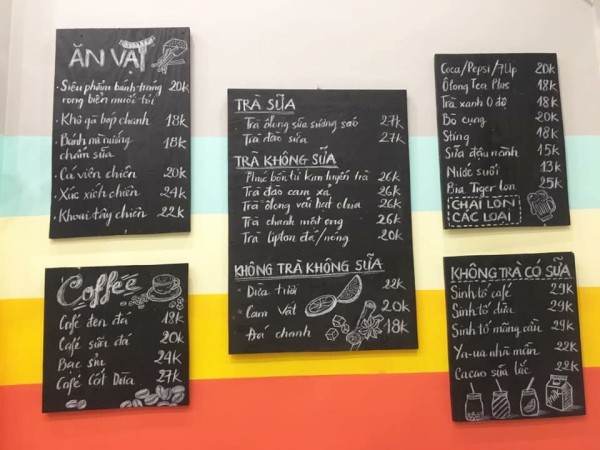 ĂN VẶT
· Siêu phẩm bánh tráng 20k
rong biển muối tỏi
· Khô gà bơ chanh 18k
· Bánh mì nướng 18k
chấm sữa
· Cá viên chiên 20k
· Xúc xích chiên 24k
· Khoai tây chiên 22k
Coffee
Café đen đá 18k
Café sữa đá 20k
Bạc sỉu 24k
Café Cốt Dừa 27k
TRÀ SỮA
· Trà ôlong sữa sương sáo 27k
· Trà đào sữa 27k
TRÀ KHÔNG SỮA
· Phúc bồn tử kam huyền trà 26k
· Trà đào cam xả 26k
· Trà ôlong vải hạt chia 26k
· Trà chanh mật ong 26k
· Trà lipton đá/nóng 20k
KHÔNG TRÀ KHÔNG SỮA
· Dừa trời 22k
· Cam vắt 20k
· Đá chanh 18k
Coca/Pepsi/7Up 20k
Ôlong Tea Plus 18k
Trà xanh O độ 18k
Bò cụng 20k
Sting 18k
Sữa đậu nành 15k
Nước suối 13k
Bia Tiger lon 25k
CHAI LON
CÁC LOẠI
KHÔNG TRÀ CÓ SỮA
Sinh tố café 29k
Sinh tố dâu 29k
Sinh tố mãng cầu 29k
Ya-ua nhà mần 22k
Cacao sữa lắc 22k